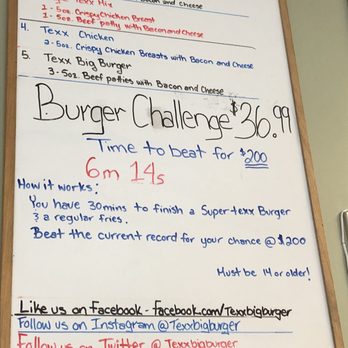 Texx Mix
Bacon and Cheese
1 - 5oz. Crispy Chicken Breast
1 - 5oz. Beef patty with Bacon and Cheese
4. Texx Chicken
2 - 5oz. Crispy Chicken Breasts with Bacon and Cheese
5. Texx Big Burger
3 - 5oz. Beef patties with Bacon and Cheese
Burger Challenge $36.99
Time to beat for $200
6m 14s
How it works:
You have 30mins to finish a Super texx Burger
& a regular fries.
Beat the current record for your chance @ $200
Must be 14 or older!
Like us on Facebook - facebook.com/Texxbigburger
Follow us on Instagram @Texxbigburger
Follow us on Twitter @Texxbigburger